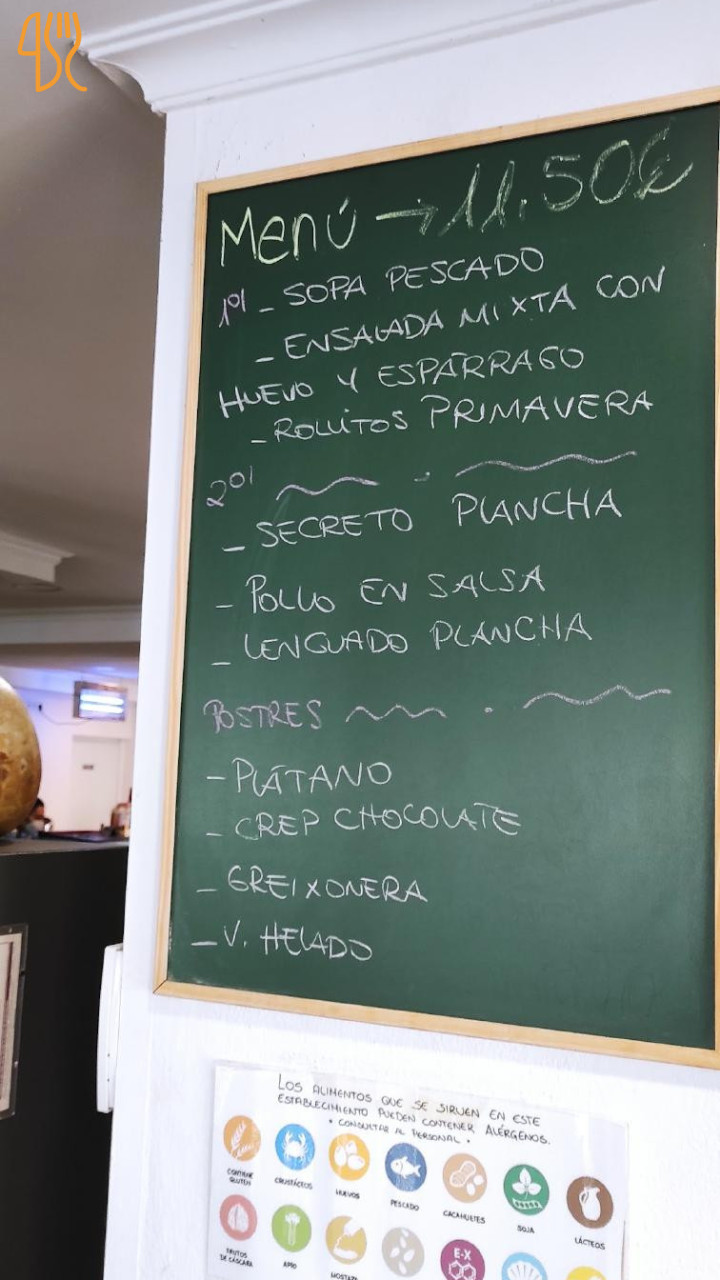 Menú → 11.50€
1º/ - SOPA PESCADO
- ENSALADA MIXTA CON
HUEVO Y ESPÁRRAGO
- ROLLITOS PRIMAVERA
2º/
- SECRETO PLANCHA
- POLLO EN SALSA
- LENGUADO PLANCHA
POSTRES
- PLÁTANO
- CREP CHOCOLATE
- GREIXONERA
- V. HELADO
LOS ALIMENTOS QUE SE SIRVEN EN ESTE
ESTABLECIMIENTO PUEDEN CONTENER ALÉRGENOS.
• CONSULTAR AL PERSONAL •
CONTIENE GLUTEN
CRUSTÁCEOS
HUEVOS
PESCADO
CACAHUETES
SOJA
LÁCTEOS
FRUTOS DE CÁSCARA
APIO
MOSTAZA
E-X